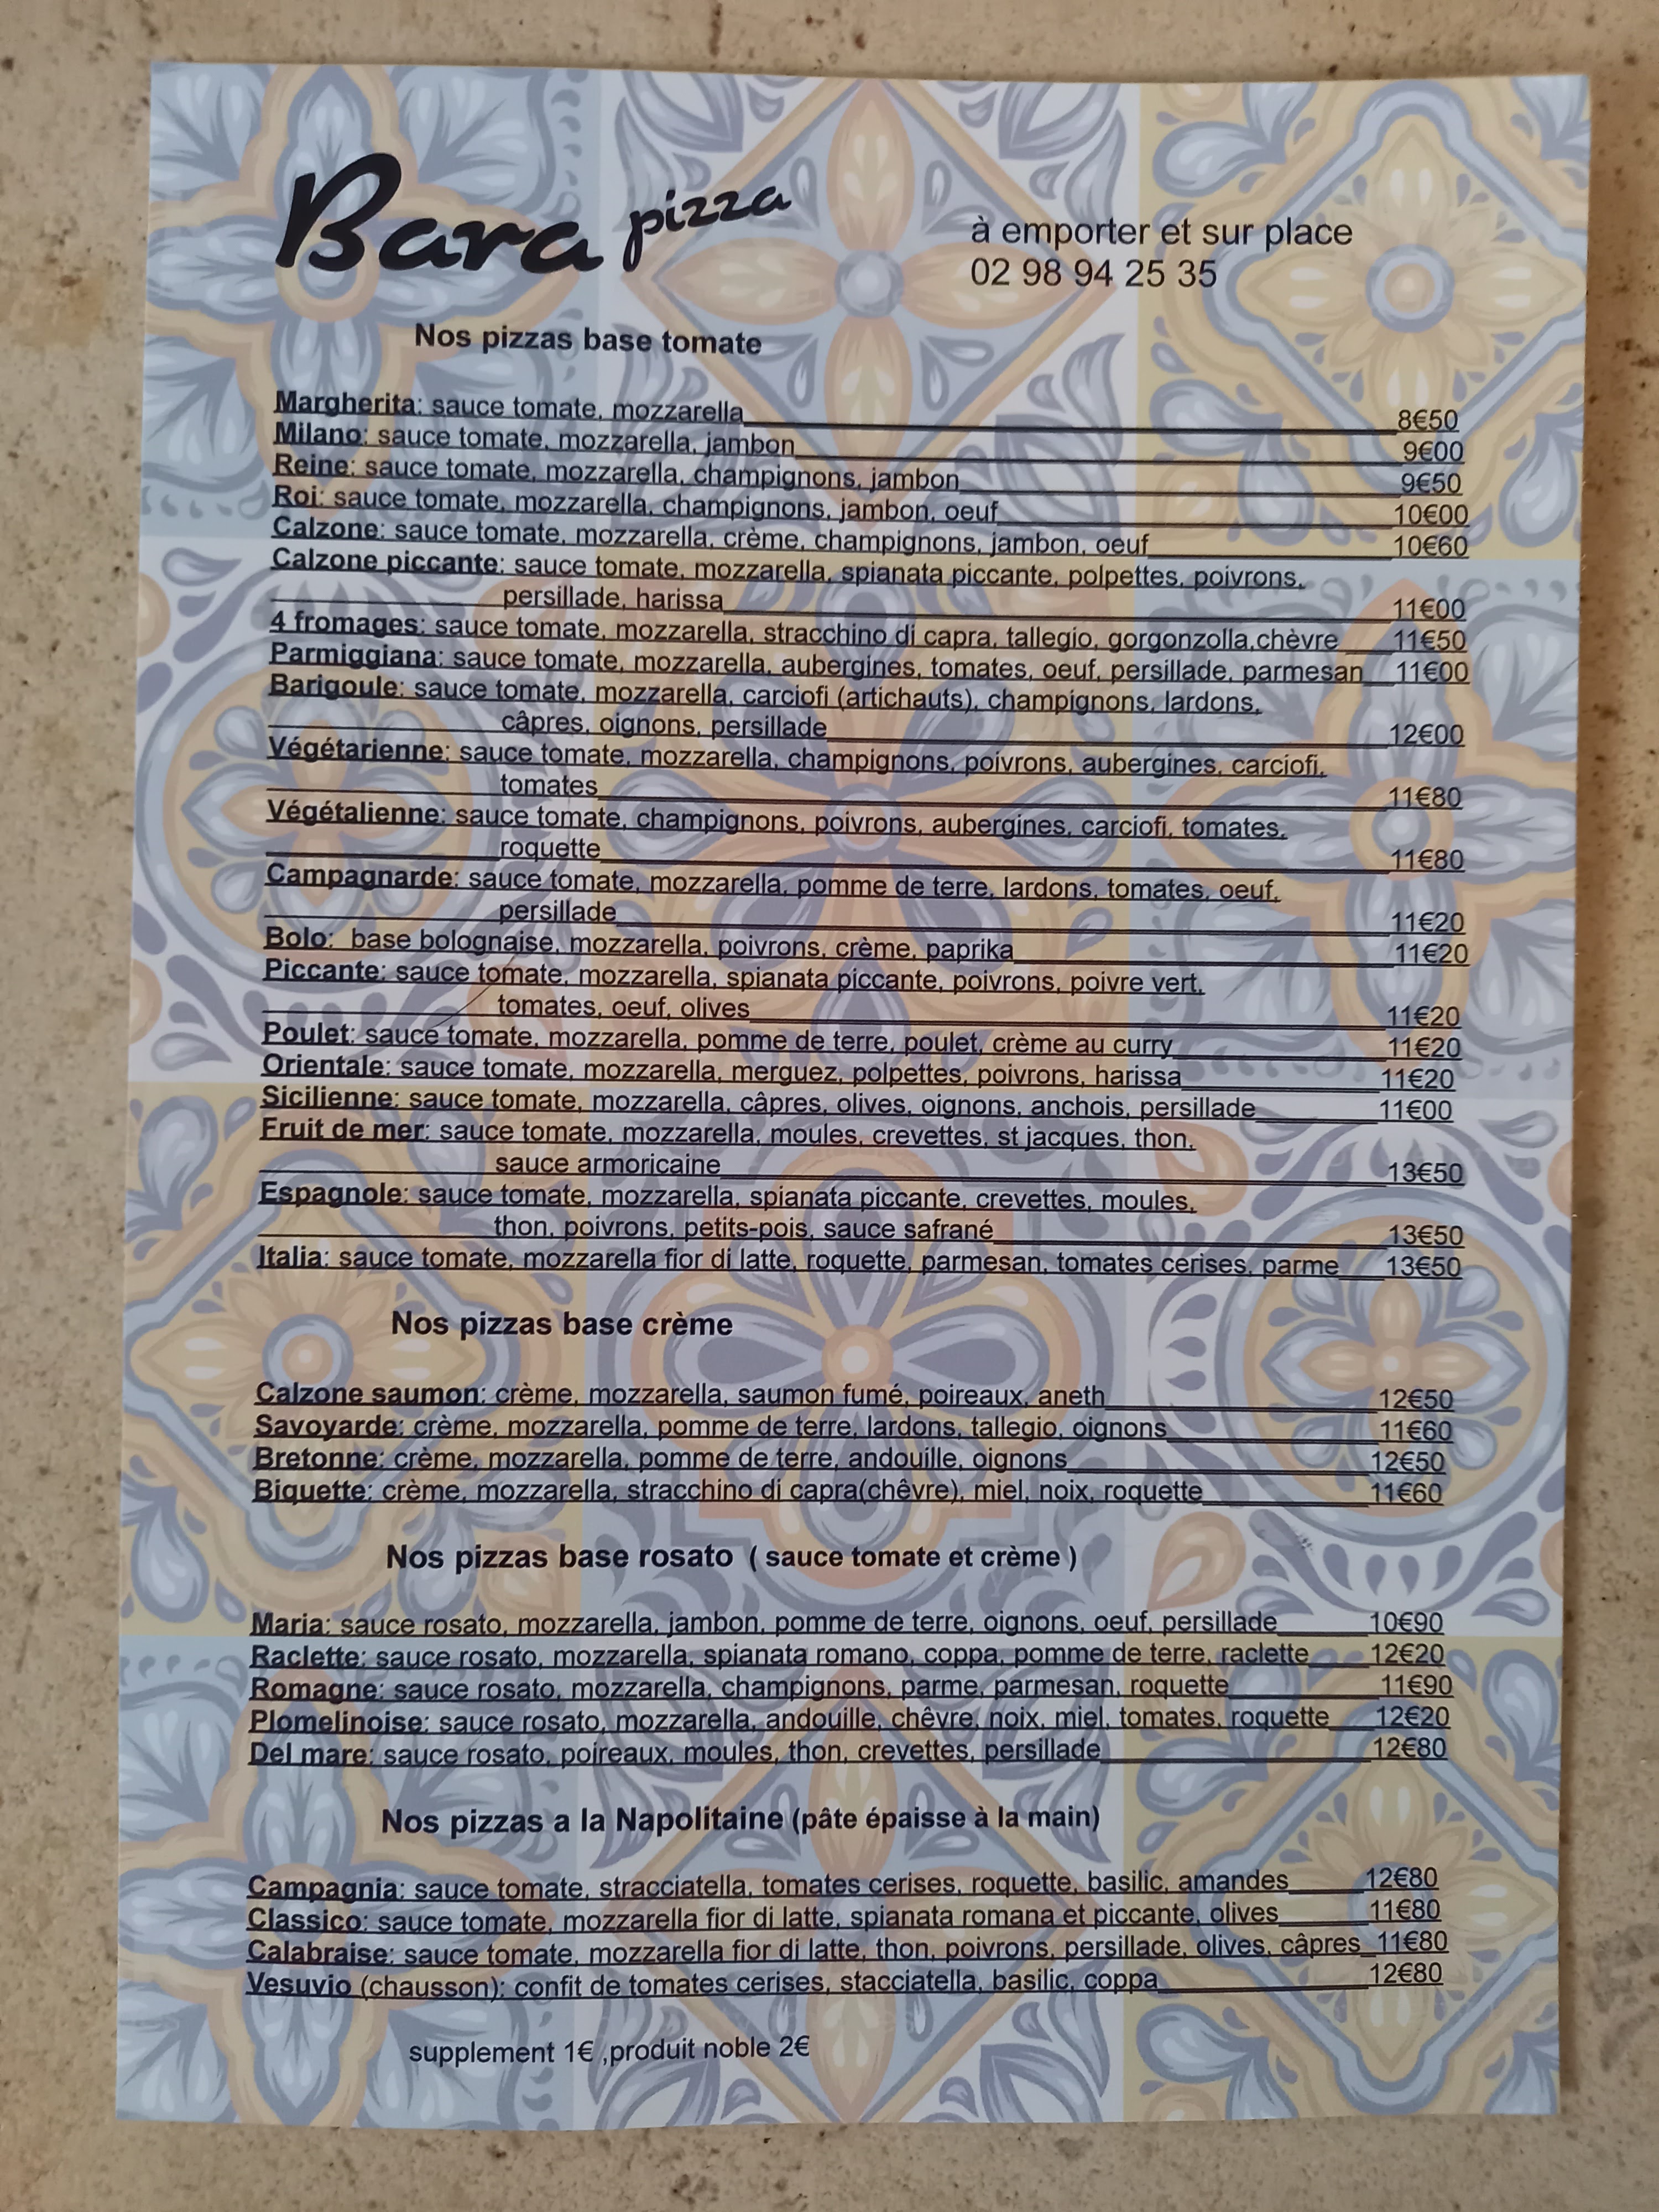 Bara pizza
à emporter et sur place
02 98 94 25 35
Nos pizzas base tomate
Margherita: sauce tomate, mozzarella 8€50
Milano: sauce tomate, mozzarella, jambon 9€00
Reine: sauce tomate, mozzarella, champignons, jambon 9€50
Roi: sauce tomate, mozzarella, champignons, jambon, oeuf 10€00
Calzone: sauce tomate, mozzarella, crème, champignons, jambon, oeuf 10€60
Calzone piccante: sauce tomate, mozzarella, spianata piccante, polpettes, poivrons,
persillade, harissa 11€00
4 fromages: sauce tomate, mozzarella, stracchino di capra, tallegio, gorgonzolla,chèvre 11€50
Parmiggiana: sauce tomate, mozzarella, aubergines, tomates, oeuf, persillade, parmesan 11€00
Barigoule: sauce tomate, mozzarella, carciofi (artichauts), champignons, lardons,
câpres, oignons, persillade 12€00
Végétarienne: sauce tomate, mozzarella, champignons, poivrons, aubergines, carciofi,
tomates 11€80
Végétalienne: sauce tomate, champignons, poivrons, aubergines, carciofi, tomates,
roquette 11€80
Campagnarde: sauce tomate, mozzarella, pomme de terre, lardons, tomates, oeuf,
persillade 11€20
Bolo: base bolognaise, mozzarella, poivrons, crème, paprika 11€20
Piccante: sauce tomate, mozzarella, spianata piccante, poivrons, poivre vert,
tomates, oeuf, olives 11€20
Poulet: sauce tomate, mozzarella, pomme de terre, poulet, crème au curry 11€20
Orientale: sauce tomate, mozzarella, merguez, polpettes, poivrons, harissa 11€20
Sicilienne: sauce tomate, mozzarella, câpres, olives, oignons, anchois, persillade 11€00
Fruit de mer: sauce tomate, mozzarella, moules, crevettes, st jacques, thon,
sauce armoricaine 13€50
Espagnole: sauce tomate, mozzarella, spianata piccante, crevettes, moules,
thon, poivrons, petits-pois, sauce safrané 13€50
Italia: sauce tomate, mozzarella fior di latte, roquette, parmesan, tomates cerises, parme 13€50
Nos pizzas base crème
Calzone saumon: crème, mozzarella, saumon fumé, poireaux, aneth 12€50
Savoyarde: crème, mozzarella, pomme de terre, lardons, tallegio, oignons 11€60
Bretonne: crème, mozzarella, pomme de terre, andouille, oignons 12€50
Biquette: crème, mozzarella, stracchino di capra(chêvre), miel, noix, roquette 11€60
Nos pizzas base rosato ( sauce tomate et crème )
Maria: sauce rosato, mozzarella, jambon, pomme de terre, oignons, oeuf, persillade 10€90
Raclette: sauce rosato, mozzarella, spianata romano, coppa, pomme de terre, raclette 12€20
Romagne: sauce rosato, mozzarella, champignons, parme, parmesan, roquette 11€90
Plomelinoise: sauce rosato, mozzarella, andouille, chêvre, noix, miel, tomates, roquette 12€20
Del mare: sauce rosato, poireaux, moules, thon, crevettes, persillade 12€80
Nos pizzas a la Napolitaine (pâte épaisse à la main)
Campagnia: sauce tomate, stracciatella, tomates cerises, roquette, basilic, amandes 12€80
Classico: sauce tomate, mozzarella fior di latte, spianata romana et piccante, olives 11€80
Calabraise: sauce tomate, mozzarella fior di latte, thon, poivrons, persillade, olives, câpres 11€80
Vesuvio (chausson): confit de tomates cerises, stacciatella, basilic, coppa 12€80
supplement 1€ ,produit noble 2€